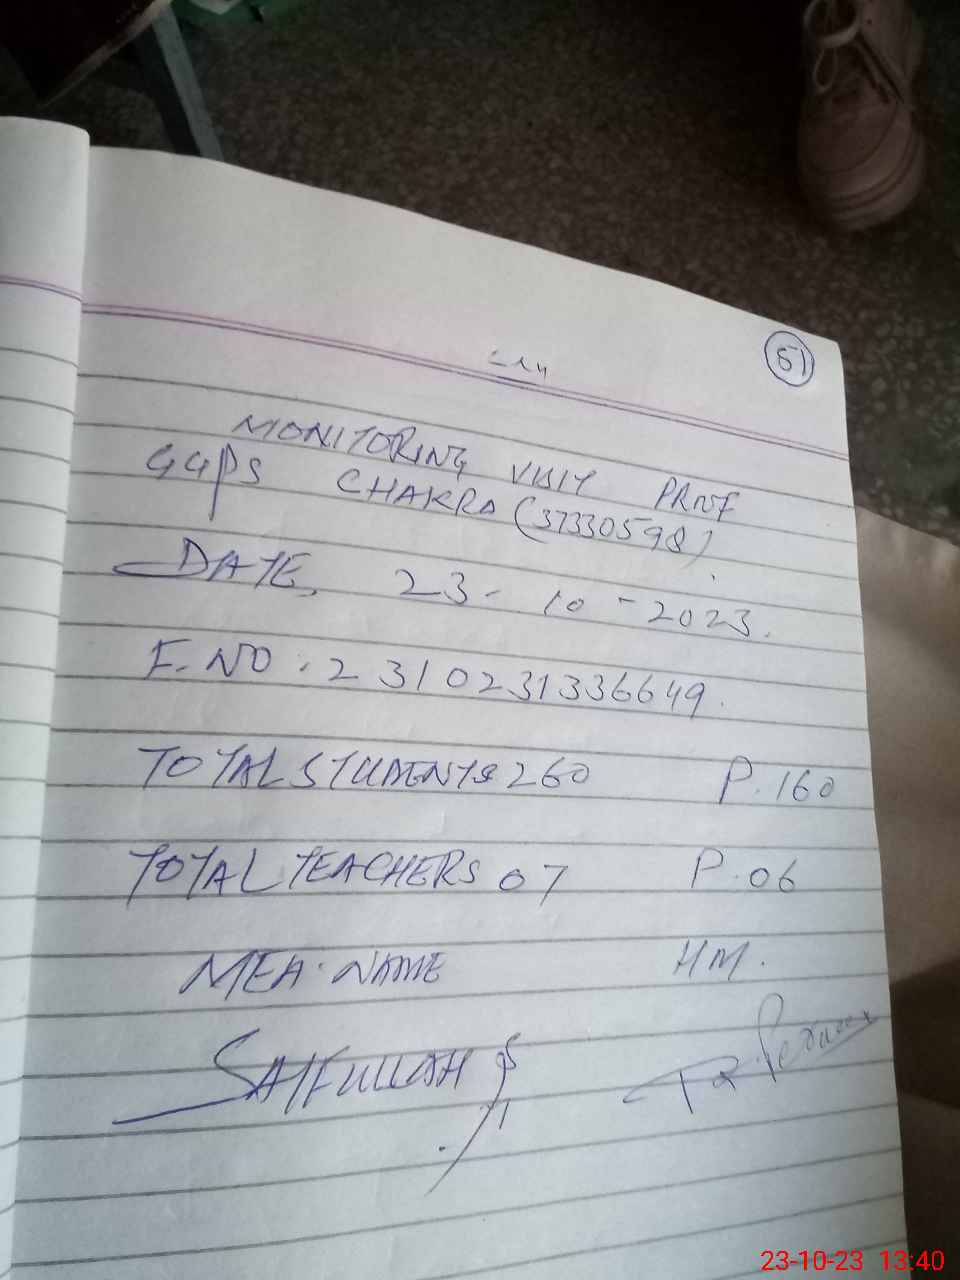 51
MONITORING VISIT PROOF
GGPS CHAKRA (37330598)
DATE, 23-10-2023.
F.NO: 2310231336649.
TOTAL STUDENTS 260 P.160
TOTAL TEACHERS 07 P.06
MEA.NAME HM.
SAIFULLAH
23-10-23 13:40